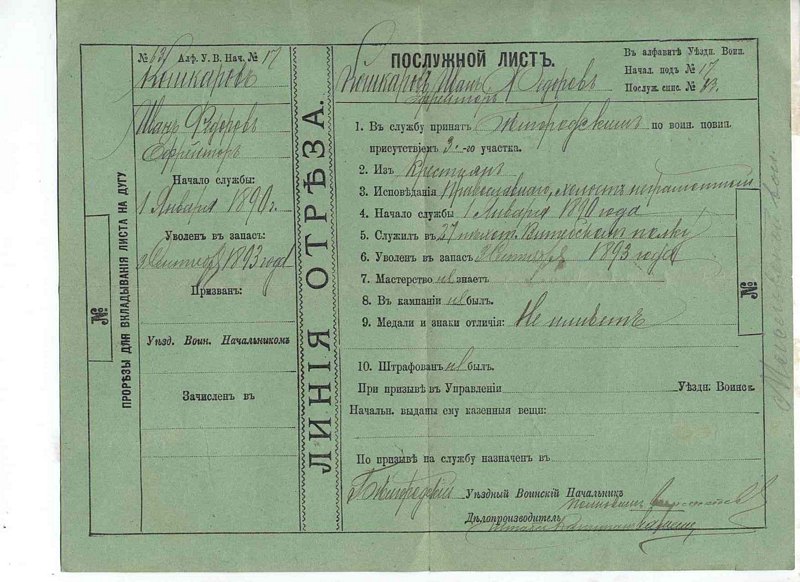 № 63 Алф. У. В. Нач. № 17
Кошкаровъ
Иванъ Ѳедоровъ
Ефрейторъ
Начало службы:
1 Января 1890 г.
Уволенъ въ запасъ:
Сентября 1893 года
Призванъ:
Уѣзд. Воин. Начальникомъ
Зачисленъ въ
№
ПРОРѢЗЫ ДЛЯ ВКЛАДЫВАНІЯ ЛИСТА НА ДУГУ
ЛИНІЯ ОТРѢЗА.
ПОСЛУЖНОЙ ЛИСТЪ.
Въ алфавитѣ Уѣздн. Воин.
Начал. подъ № 17
Послуж. спис. № 83.
Кошкаровъ Иванъ Ѳедоровъ
Ефрейторъ
1. Въ службу принятъ по воин. повин.
присутствіемъ 3-го участка.
2. Изъ крестьянъ
3. Исповѣданія Православнаго, холостъ неграмотный
4. Начало службы 1 Января 1890 года
5. Служилъ въ 27 пѣхот. Витебскомъ полку
6. Уволенъ въ запасъ Сентября 1893 года
7. Мастерство не знаетъ
8. Въ кампаніи не былъ.
9. Медали и знаки отличія: Не имѣетъ
10. Штрафованъ не былъ.
При призывѣ въ Управленіи Уѣздн. Воинск.
Начальн. выданы ему казенныя вещи:
По призывѣ на службу назначенъ въ
Уѣздный Воинскій Начальникъ
Дѣлопроизводитель
№